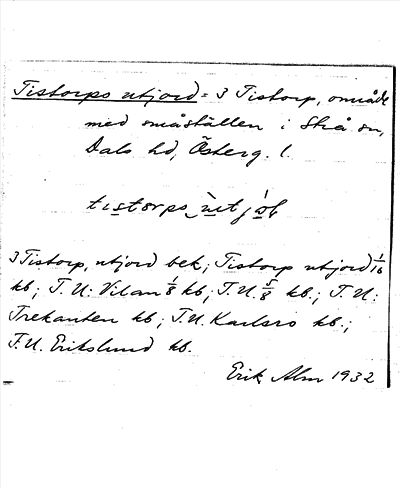 Tistorps utjord = 3 Tistorp, område
med småställen i Strå sn,
Dals hd, Österg. l.
3 Tistorp, utjord bek.; Tistorp utjord 1/16
kb; T. U: Vilan 1/8 kb; T. U. 5/8 kb.; T. U:
Trekanten kb; T. U. Karlsro kb.;
T. U. Erikslund kb.
Erik Alm 1932